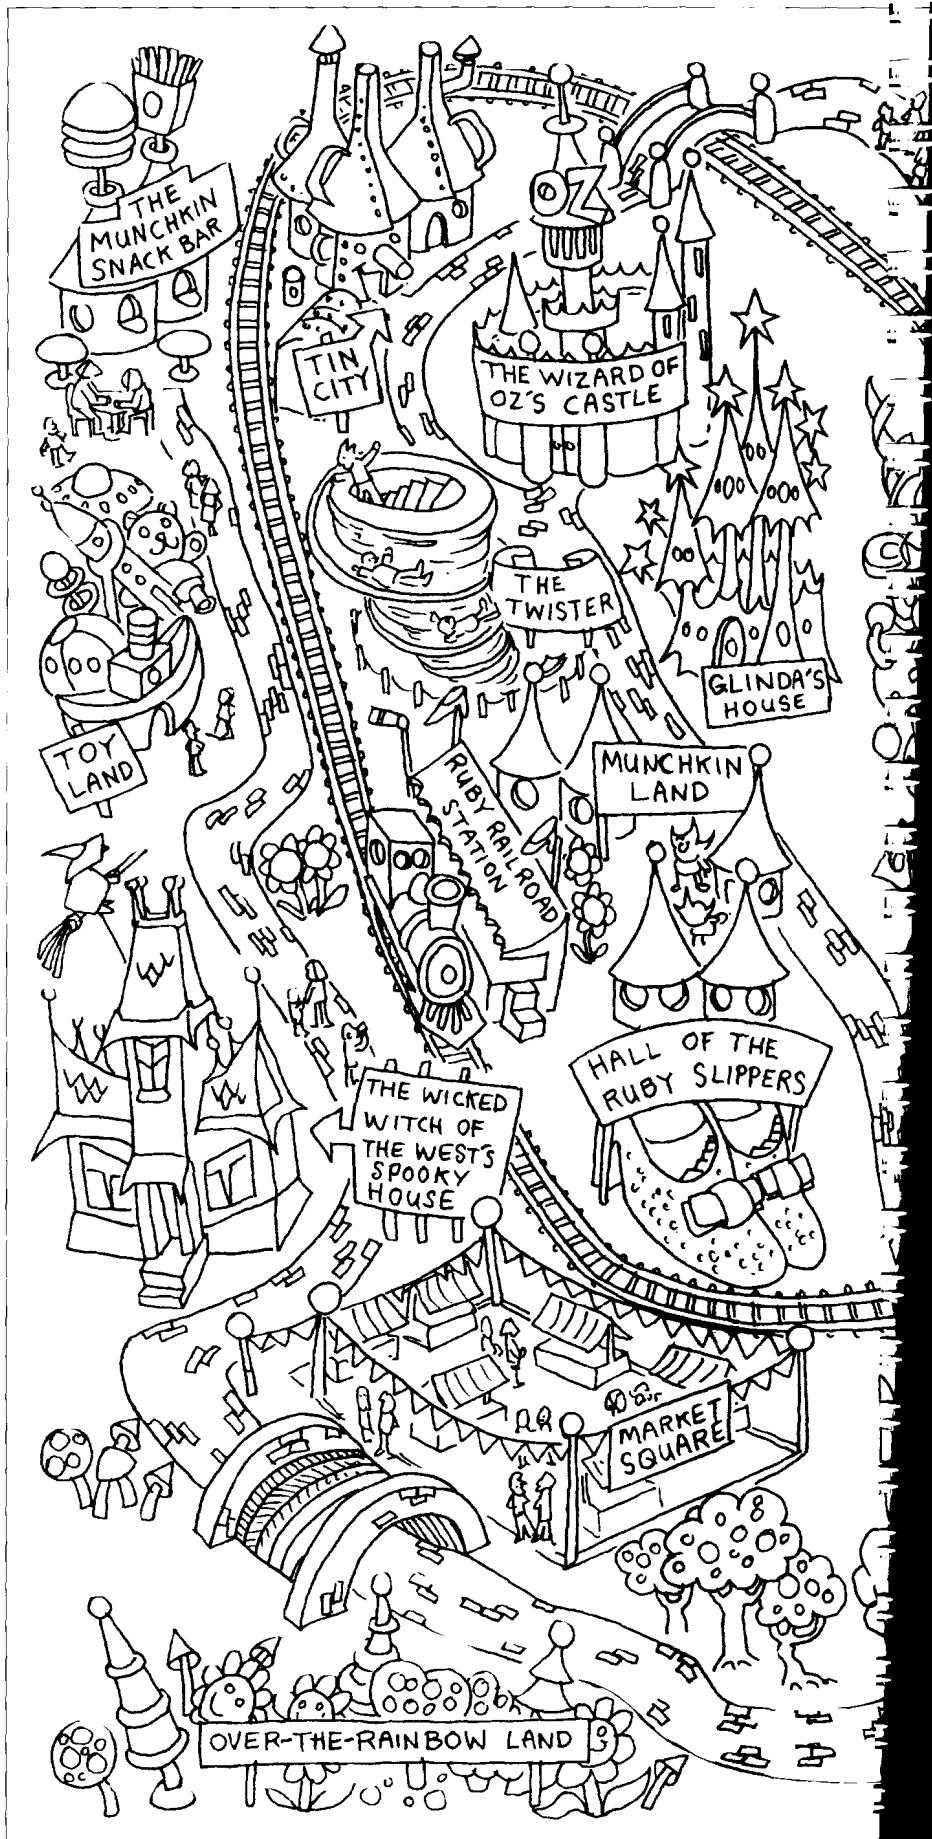 THE
MUNCHKIN
SNACK BAR
OZ
TIN
CITY
THE WIZARD OF
OZ'S CASTLE
THE
TWISTER
GLINDA'S
HOUSE
TOY
LAND
RUBY RAILROAD
STATION
MUNCHKIN
LAND
HALL OF THE
RUBY SLIPPERS
THE WICKED
WITCH OF
THE WEST'S
SPOOKY
HOUSE
MARKET
SQUARE
OVER-THE-RAINBOW LAND